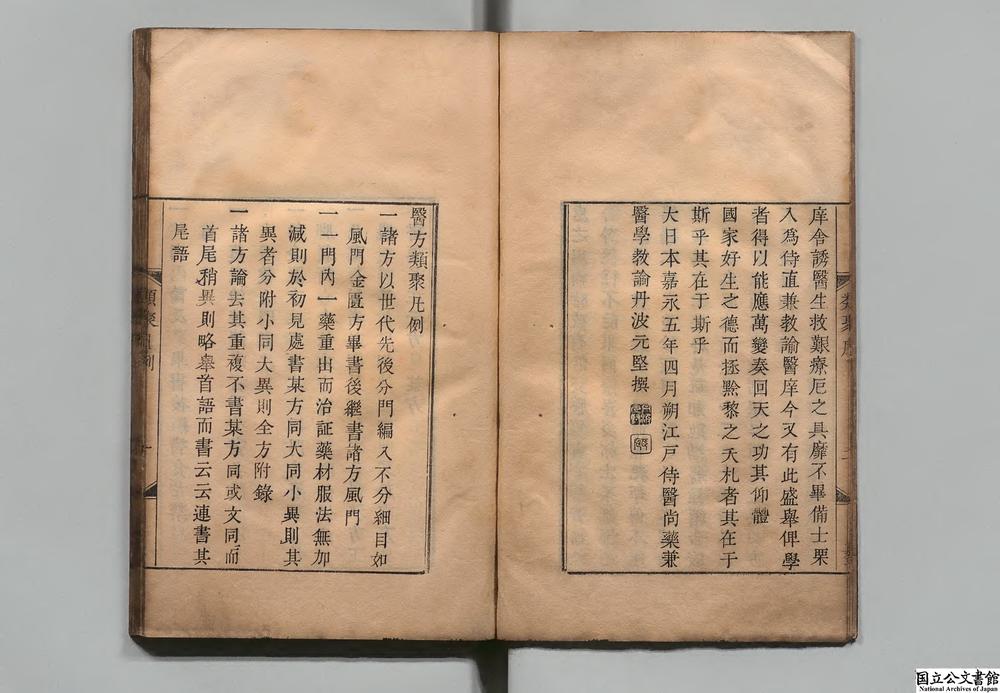 庠舍誘醫生救艱療厄之具靡不畢備士栗
入爲侍直兼敎諭醫庠今又有此盛舉俾學
者得以能應萬變奏回天之功其仰體
國家好生之德而拯黔黎之夭札者其在于
斯乎其在于斯乎
大日本嘉永五年四月朔江戶侍醫尙藥兼
醫學敎諭丹波元堅撰
醫方類聚凡例
一諸方以世代先後分門編入不分細目如
風門金匱方畢書後繼書諸方風門
一一門內一藥重出而治証藥材服法無加
減則於初見處書某方同大同小異則其
異者分附小同大異則全方附錄
一諸方論去其重複不書某方同或文同而
首尾稍異則略舉首語而書云云連書其
尾語
類聚凡例
国立公文書館
National Archives of Japan